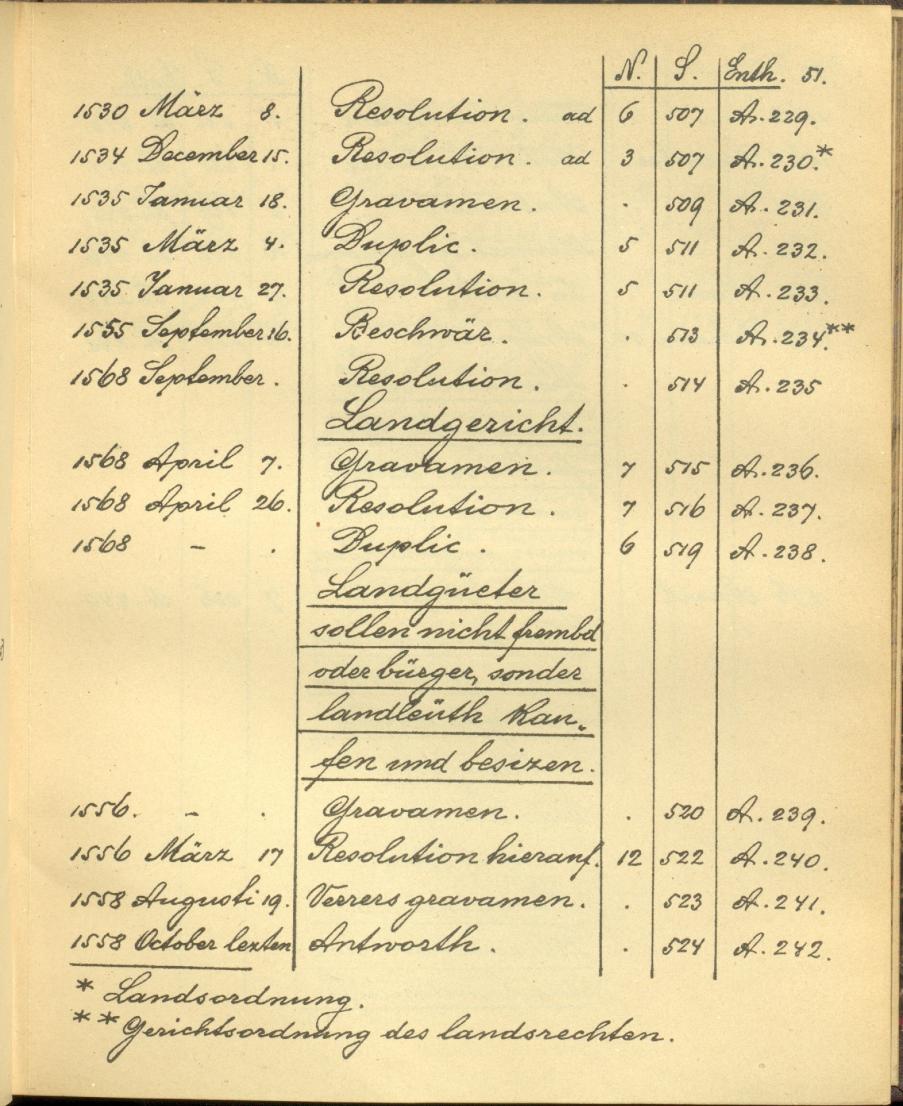 N. S. Enth. 51.
1530 März 8. Resolution. ad 6 507 A. 229.
1534 December 15. Resolution. ad 3 507 A. 230.*
1535 Januar 18. Gravamen. . 509 A. 231.
1535 März 4. Duplic. 5 511 A. 232.
1535 Januar 27. Resolution. 5 511 A. 233.
1555 September 16. Beschwär. . 513 A. 234.**
1568 September. Resolution. . 514 A. 235
Landgericht.
1568 April 7. Gravamen. 7 515 A. 236.
1568 April 26. Resolution. 7 516 A. 237.
1568 – . Duplic. 6 519 A. 238.
Landgüeter
sollen nicht frembd
oder bürger, sonder
landleüth kau„
fen und besizen.
1556. – . Gravamen. . 520 A. 239.
1556 März 17 Resolution hierauf. 12 522 A. 240.
1558 Augusti 19. Verers gravamen. . 523 A. 241.
1558 October lezten Antworth. . 524 A. 242.
* Landsordnung.
** Gerichtsordnung des landsrechten.